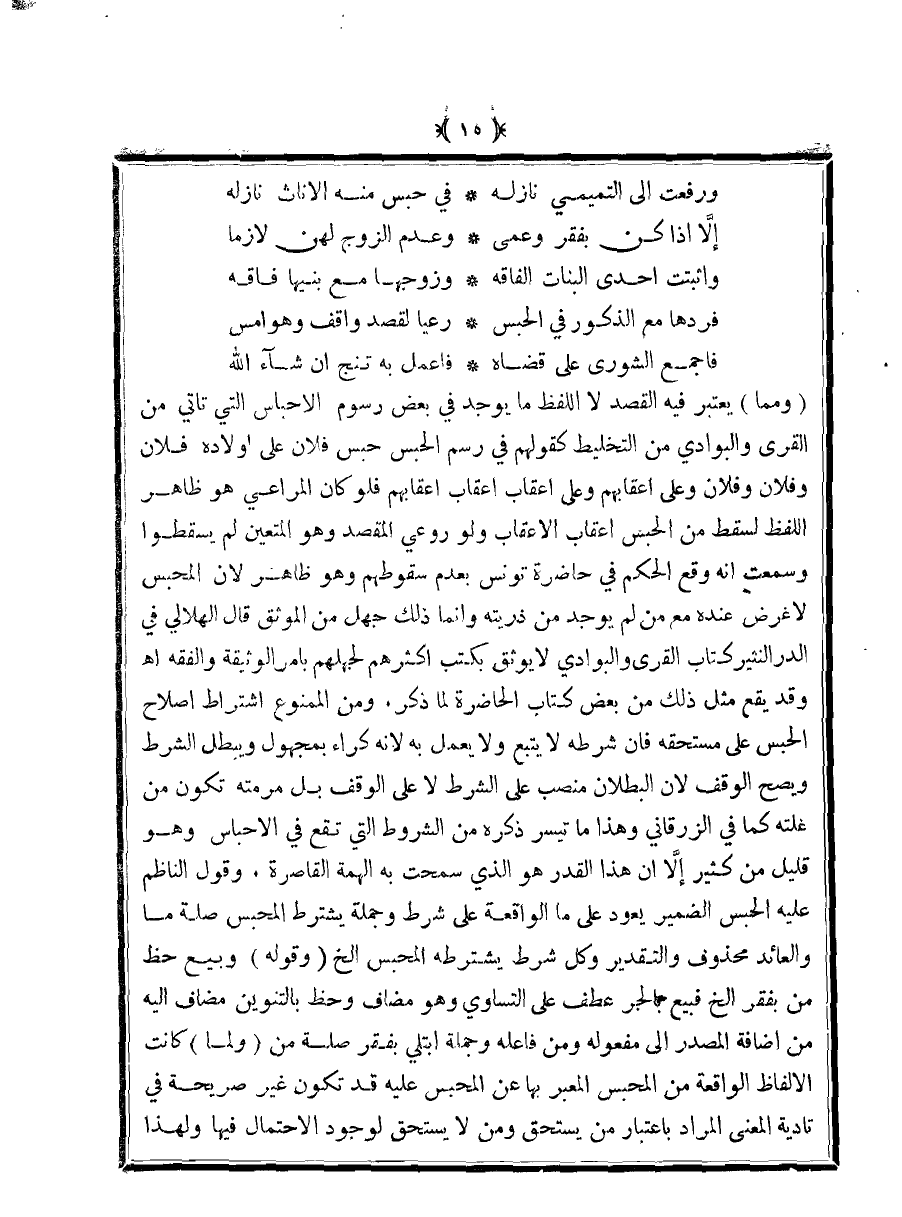 ﴿ ١٥ ﴾
ورفعت الى التميمي نازله * في حبس منه الاناث نازله
إلَّا اذا كن بفقر وعمى * وعدم الزوج لهن لازما
واثبتت احدى البنات الفاقه * وزوجها مع بنيها فاقه
فردها مع الذكور في الحبس * رعيا لقصد واقف وهو امس
فاجمع الشورى على قضاه * فاعمل به تنج ان شآء الله
( ومما ) يعتبر فيه القصد لا اللفظ ما يوجد في بعض رسوم الاحباس التي تاتي من
القرى والبوادي من التخليط كقولهم في رسم الحبس حبس فلان على اولاده فلان
وفلان وفلان وعلى اعقابهم وعلى اعقاب اعقاب اعقابهم فلو كان المراعي هو ظاهر
اللفظ لسقط من الحبس اعقاب الاعقاب ولو روعي المقصد وهو المتعين لم يسقطوا
وسمعت انه وقع الحكم في حاضرة تونس بعدم سقوطهم وهو ظاهر لان المحبس
لاغرض عنده مع من لم يوجد من ذريته وانما ذلك جهل من الموثق قال الهلالي في
الدر النثير كتاب القرى والبوادي لايوثق بكتب اكثرهم لجهلهم بامر الوثيقة والفقه اه
وقد يقع مثل ذلك من بعض كتاب الحاضرة لما ذكر . ومن الممنوع اشتراط اصلاح
الحبس على مستحقه فان شرطه لا يتبع ولا يعمل به لانه كراء بمجهول ويبطل الشرط
ويصح الوقف لان البطلان منصب على الشرط لا على الوقف بل مرمته تكون من
غلته كما في الزرقاني وهذا ما تيسر ذكره من الشروط التي تقع في الاحباس وهو
قليل من كثير إلَّا ان هذا القدر هو الذي سمحت به الهمة القاصرة . وقول الناظم
عليه الحبس الضمير يعود على ما الواقعة على شرط وجملة يشترط المحبس صلة ما
والعائد محذوف والتقدير وكل شرط يشترطه المحبس الخ ( وقوله ) وبيع حظ
من بفقر الخ فبيع بالجر عطف على التساوي وهو مضاف وحظ بالتنوين مضاف اليه
من اضافة المصدر الى مفعوله ومن فاعله وجملة ابتلي بفقر صلة من ( ولما ) كانت
الالفاظ الواقعة من المحبس المعبر بها عن المحبس عليه قد تكون غير صريحة في
تادية المعنى المراد باعتبار من يستحق ومن لا يستحق لوجود الاحتمال فيها ولهذا